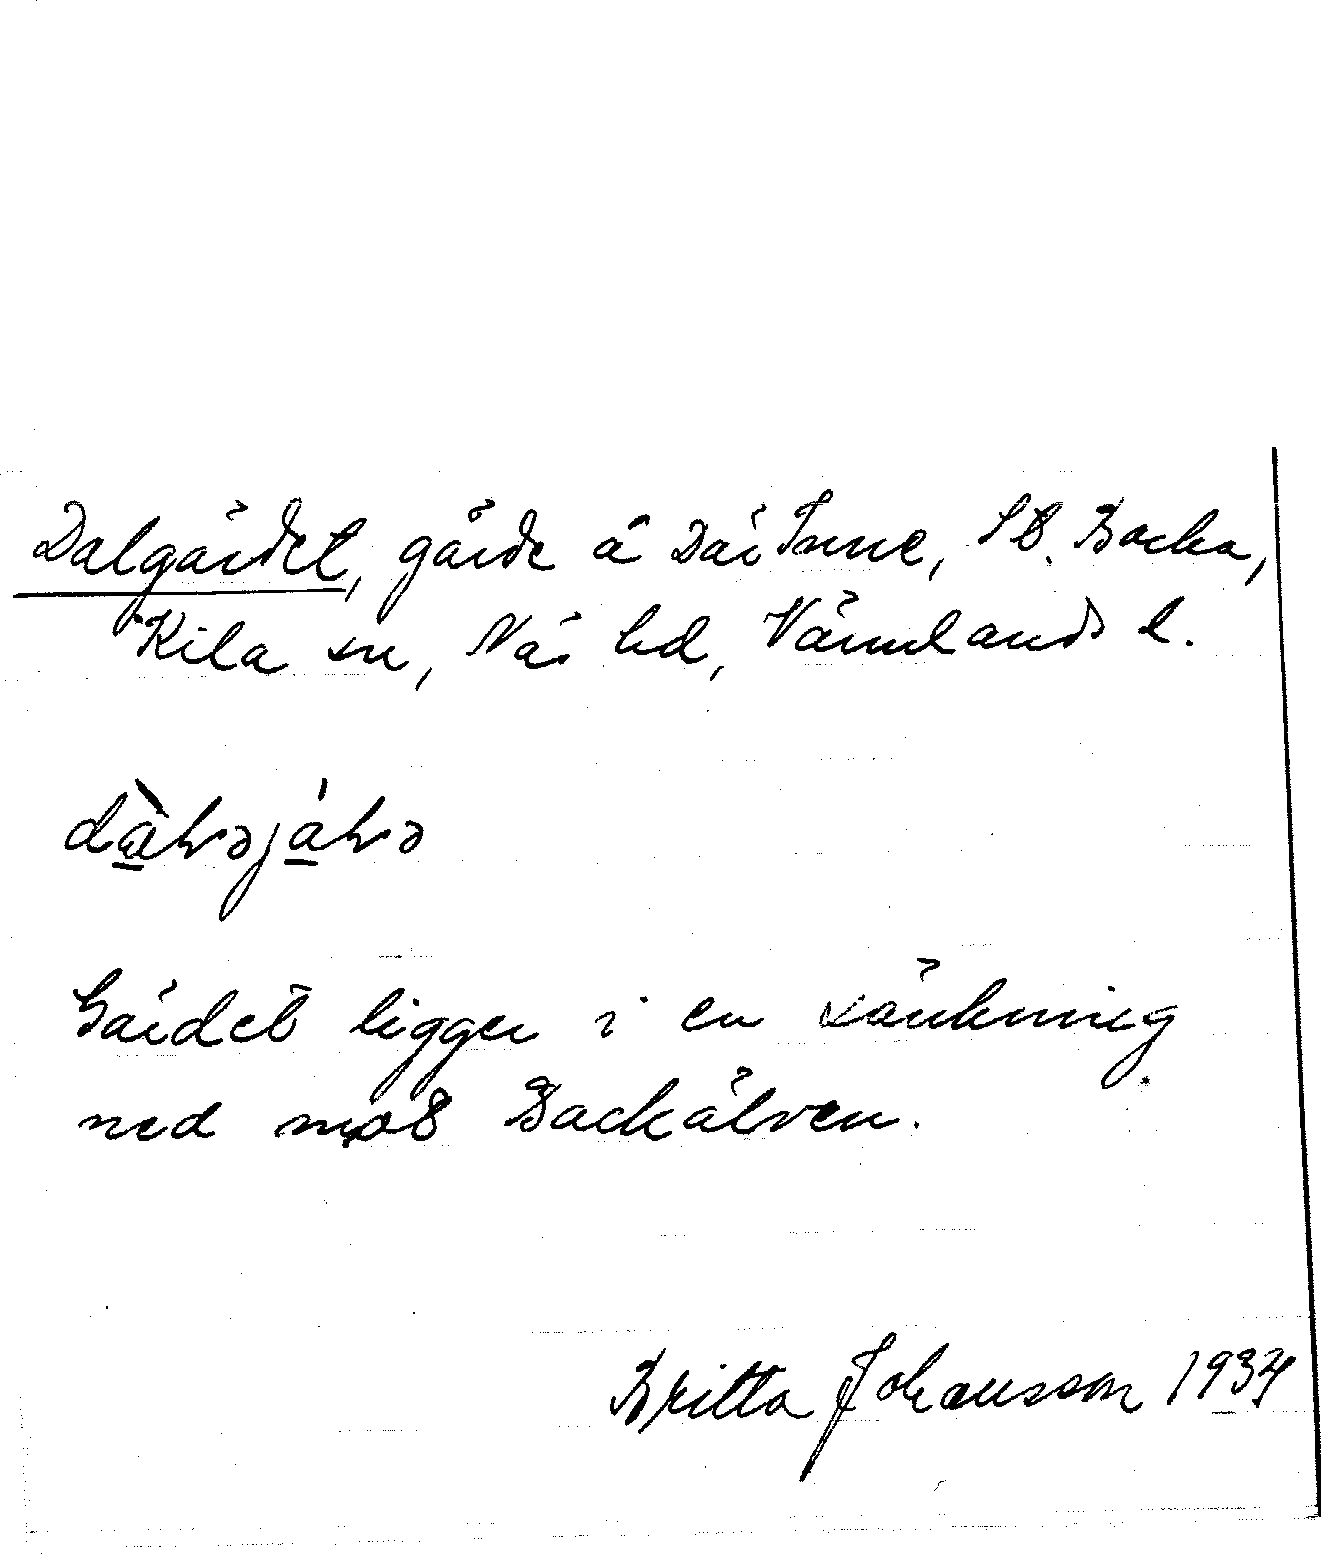 Dalgärdet, gärde å Där Inne, St. Backa,
Kila sn, Näs hd, Värmlands l.
Gärdet ligger i en sänkning
ned mot Backälven.
Britta Johansson 1934